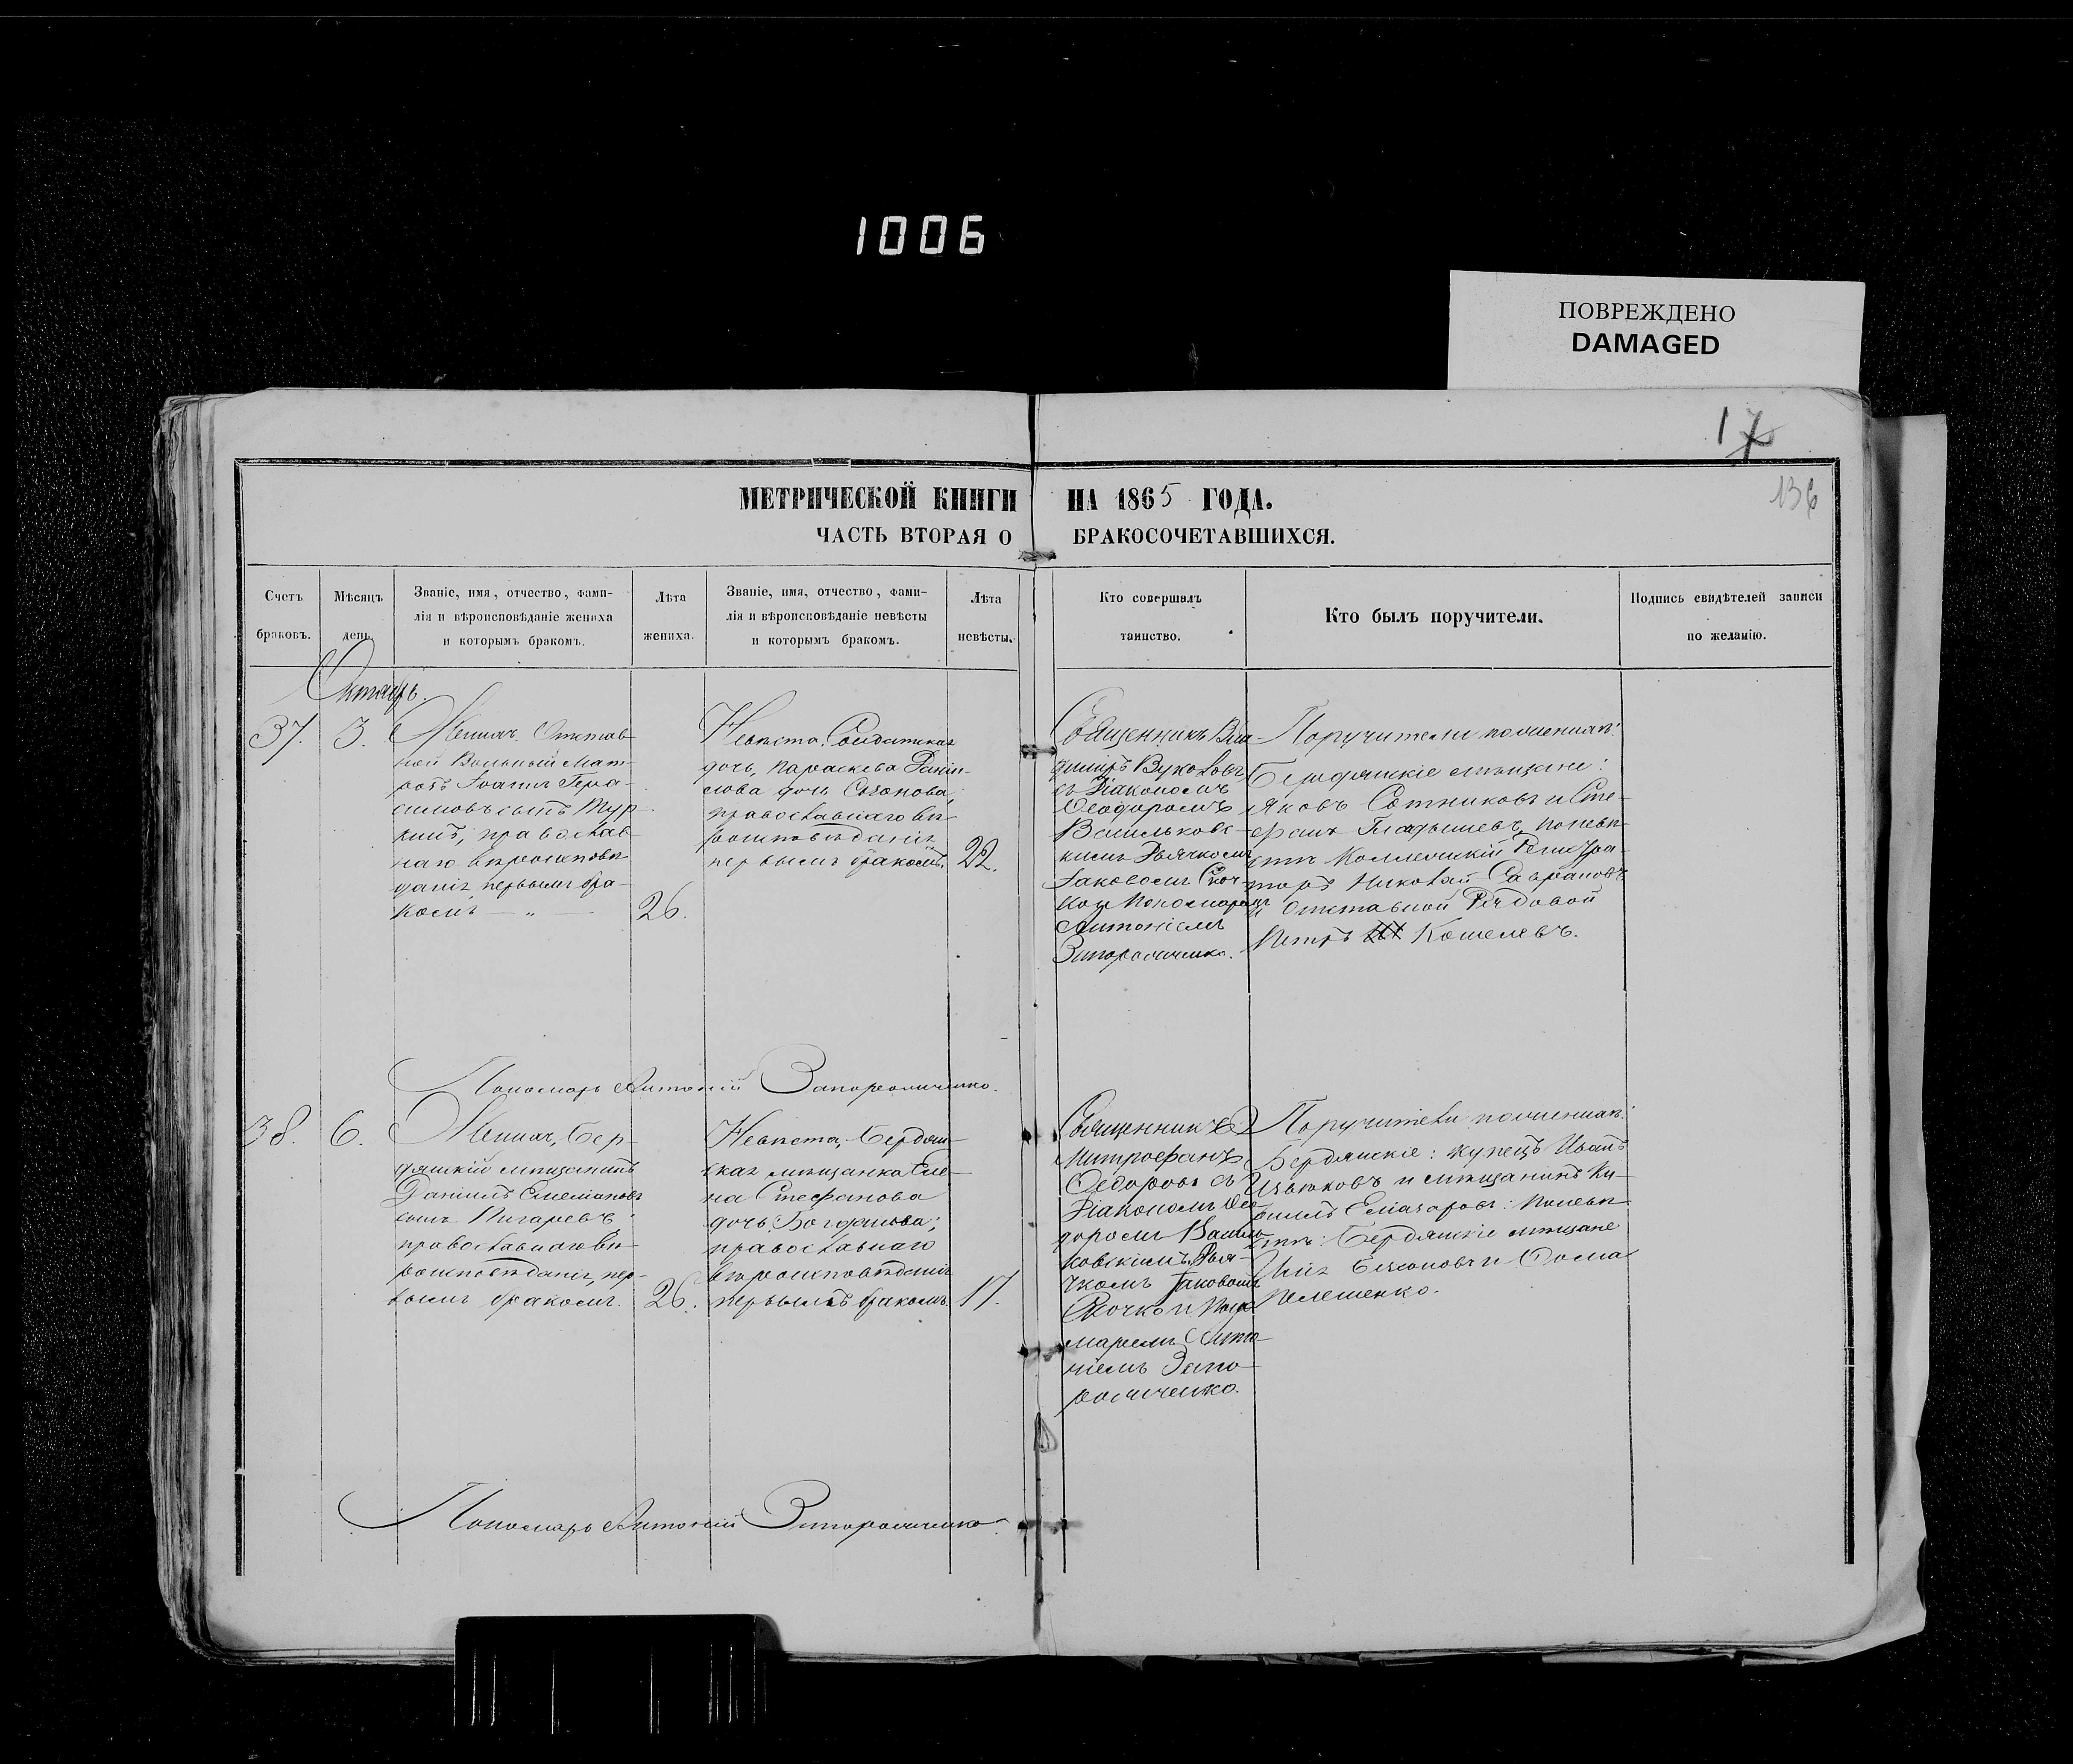 1006
ПОВРЕЖДЕНО
DAMAGED
17
136
МЕТРИЧЕСКОЙ КНИГИ НА 1865 ГОДА.
ЧАСТЬ ВТОРАЯ О БРАКОСОЧЕТАВШИХСЯ.
Счетъ
браковъ.
Мѣсяцъ
день.
Званіе, имя, отчество, фами-
лія и вѣроисповѣданіе жениха
и которымъ бракомъ.
Лѣта
жениха.
Званіе, имя, отчество, фами-
лія и вѣроисповѣданіе невѣсты
и которымъ бракомъ.
Лѣта
невѣсты.
Кто совершалъ
таинство.
Кто былъ поручители.
Подпись свидѣтелей записи
по желанію.
Октябрь.
37.
3.
Женихъ Отстав-
ной Вольный Мат-
росъ Іоаннъ Гера-
симовъ сынъ
православ-
наго вѣроисповѣ-
данія, первымъ бра-
комъ — „ —
26.
Невѣста, Солдатская
дочь, Параскева Даніи-
лова дочь
православнаго вѣ-
роисповѣданія
первымъ бракомъ.
22.
Священникъ Вла-
диміръ Вуколовъ
съ Діакономъ
Ѳеодоромъ
Васильковс-
кимъ Дьячкомъ
Іаковомъ Скоч-
ко и Пономаремъ
Антоніемъ
Запорожченко.
Поручители по женихѣ:
Бердянскіе мѣщане:
Яковъ Сотниковъ и Сте-
фанъ Гладышевъ, по невѣ-
стѣ Коллежскій Регистра-
торъ Николай
и Отставной Рядовой
Петръ Кошелевъ.
Пономарь Антоній Запорожченко.
38.
6.
Женихъ, Бер-
дянскій мѣщанинъ
Даніилъ
сынъ Пигаревъ
православнаго вѣ-
роисповѣданія, пер-
вымъ бракомъ.
26.
Невѣста, Бердян-
ская мѣщанка Еле-
на Стефанова
дочь Богданова;
православнаго
вѣроисповѣданія
первымъ бракомъ
17.
Священникъ
Митрофанъ
Ѳедоровъ съ
Діакономъ Ѳео-
доромъ Василь-
ковскимъ, Дья-
чкомъ Іаковомъ
Скочко и Поно-
маремъ Анто-
ніемъ Запо-
рожченко.
Поручители по женихѣ:
Бердянскіе: купецъ Иванъ
Изьюковъ и мѣщанинъ Ки-
риллъ Елизаровъ: по невѣ-
стѣ: Бердянскіе мѣщане
Илія и Ѳома
Пелешенко.
Пономарь Антоній Запорожченко.